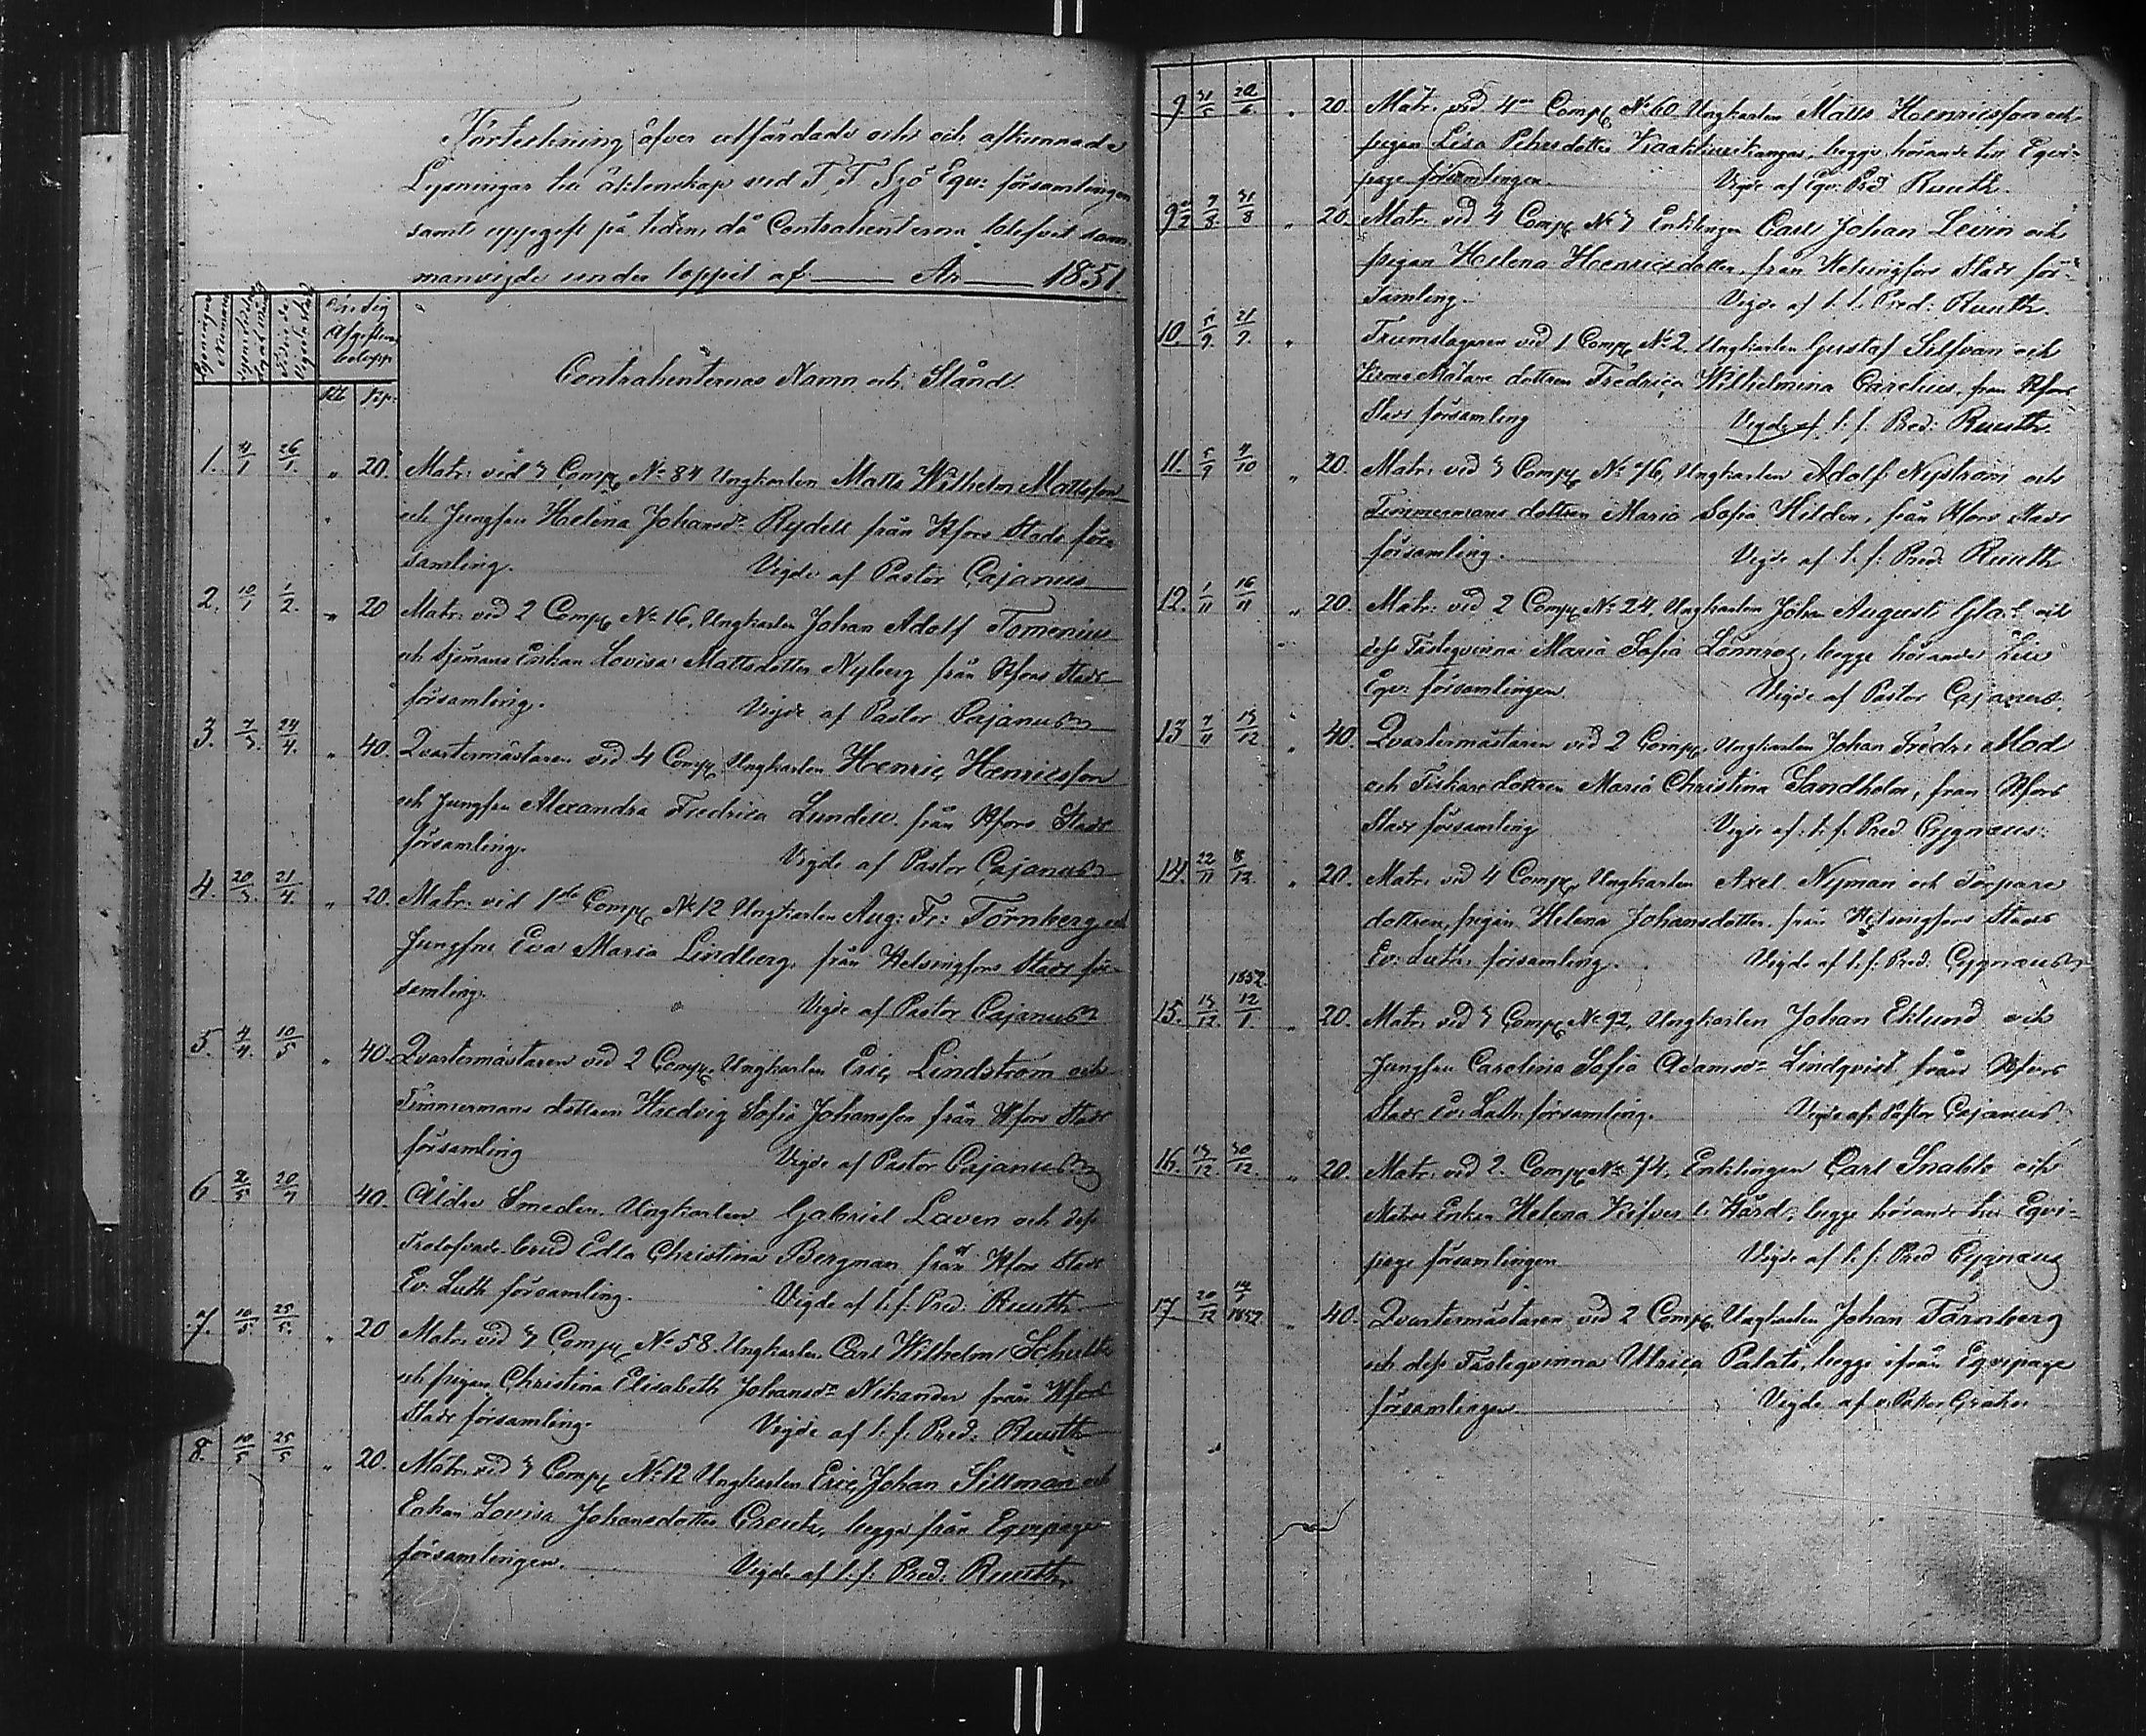 Förteckning öfver utfärdade och och afkunnade
Lysningar till äktenskap ved F. F. Sjö Eqv: församlingen
samt uppgift på tiden, då Contrahenterne blifvit sam-
manvigde under loppet af — År — 1851.
Contrahenternas Namn och Stånd.
Rb Kop:
1. 4/1 26/1. „ 20. Matr: vid 3 Comp No 84 Ungkarlen Matts Wilhelm Mattsson
och Jungfru Helena Johansdr Rydell från Hfors Stads för-
samling. Vigde af Pastor Cajanus
2. 10/1 1/2. „ 20 Matr: vid 2 Comp No 16, Ungkarlen Johan Adolf Tomenius
och Sjömans Enkan Lovisa Mattsdotter Nyberg från Hfors Stads
församling. Vigde af Pastor Cajanus
3. 7/3. 24/4. „ 40. Qvartermästaren vid 4 Comp Ungkarlen Henric Henricsson
och Jungfru Alexandra Fredrica Lundell från Hfors Stads
församling. Vigde af Pastor Cajanus
4. 20/3. 21/4. „ 20. Matr: vid 1sta Comp No 12 Ungkarlen Aug: Fr: Törnberg och
Jungfru Eva Maria Lindberg, från Helsingfors Stads för-
samling. Vigde af Pastor Cajanus
5. 4/4. 10/5 „ 40. Qvartermästaren vid 2 Comp. Ungkarlen Eric Lindström och
Timmermans dottren Hedvig Sofia Johansson från Hfors Stads
församling Vigde af Pastor Cajanus
6. 2/5 20/7 40. Äldre Smeden Ungkarlen Gabriel Laven och dess
Trolofvade brud Edla Christina Bergman från Hfors Stads
Ev. Luth församling. Vigde af t. f. Pred. Ruuth
7. 10/5 25/5. „ 20 Matr: vid 3 Comp No 58. Ungkarlen Carl Wilhelm Schultz
och pigan Christina Elisabeth Johansdr Nikander från Hfors
Stads församling. Vigde af t. f. Pred. Ruuth
8. 10/5 25/5 „ 20. Matr. vid 3 Comp No 12 Ungkarlen Eric Johan Sillman och
Enkan Lovisa Johansdotter Creutz, begge från Eqvipage
församlingen. Vigde af t. f. Pred. Ruuth.
9. 31/5 22/6. „ 20. Matr. vid 4de Comp No 60 Ungkarlen Matts Henricsson och
pigan Lisa Pehrsdotter begge hörande till Eqvi-
page församlingen. Vigde af Eqv: Pred Ruuth.
9½ 31/8 „ 20. Matr. vid 4 Comp No 3 Enklingen Carl Johan Levin och
pigan Helena Henricsdotter, från Helsingfors Stads för-
samling. Vigde af t. f. Pred: Ruuth.
10. 5/9. 21/9. „ Trumslagaren vid 1 Comp No 2. Ungkarlen Gustaf Silfvan och
Målare dottren Fredrica Wilhelmina Carelius, från Hfors
Stads församling Vigde af t. f. Pred: Ruuth.
11. 5/9 4/10 „ 20. Matr: vid 3 Comp No 76, Ungkarlen Adolf Nyström och
Timmermans dottren Maria Sofia Hilden, från Hfors Stads
församling. Vigde af t. f. Pred. Ruuth
12. 1/11 16/11 „ 20. Matr: vid 2 Comp No 24, Ungkarlen Johan August och
dess Fästeqvinna Maria Sofia Lönnroz, begge hörande till
Eqv: församlingen. Vigde af Pastor Cajanus.
13 /11 /12. „ 40. Qvartermästaren vid 2 Comp. Ungkarlen Johan Fredr: Mod
och Fiskare dottren Maria Christina Sandholm, från Hfors
Stads församling Vigde af t. f. Pred. Cygnæus.
14. 22/11 /12. „ 20. Matr. vid 4 Comp. Ungkarlen Axel Nyman och Torpare
dottren, pigan Helena Johansdotter, från Helsingfors Stads
Ev: Luth. församling. Vigde af t. f. Pred. Cygnæus
1852.
15. 13/12. 12/1. „ 20. Matr. vid 3 Comp No 92, Ungkarlen Johan Eklund och
Jungfru Carolina Sofia Adamsdr Lindqvist från Hfors
Stads Ev: Luth. församling. Vigde af Pastor Cajanus.
16. 13/12 30/12. „ 20. Matr. vid 2. Comp No 74, Enklingen Carl Snabb och
Matros Enkan Helena Hård, begge hörande till Eqvi-
page församlingen Vigde af t. f. Pred Cygnæus
17 20/12 1852. „ 40. Qvartermästaren vid 2 Comp. Ungkarlen Johan Törnberg
och dess Fästeqvinna Ulrica Palati, begge ifrån Eqvipage
församlingen. Vigde af